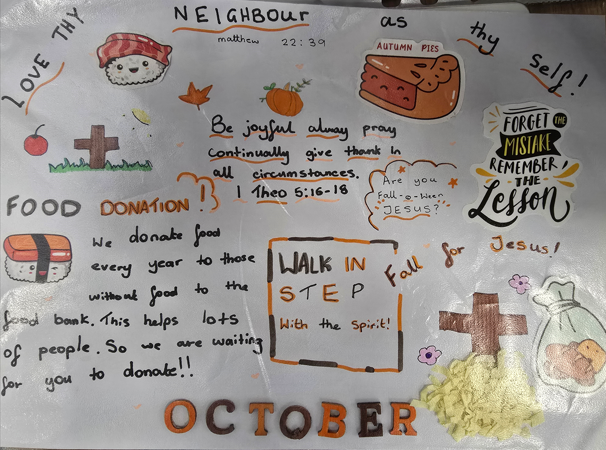 LOVE THY NEIGHBOUR as thy self!
matthew 22:39
AUTUMN PIES
Be joyful alway pray
continually give thank in
all circumstances.
1 Theo 5:16-18
FORGET THE
MISTAKE
REMEMBER
THE
Lesson
Are you
Fall-o-ween
JESUS?
FOOD DONATION!
We donate food
every year to those
without food to the
food bank. This helps lots
of people. So we are waiting
for you to donate!!
WALK IN
STEP
With the Spirit!
Fall for Jesus!
OCTOBER